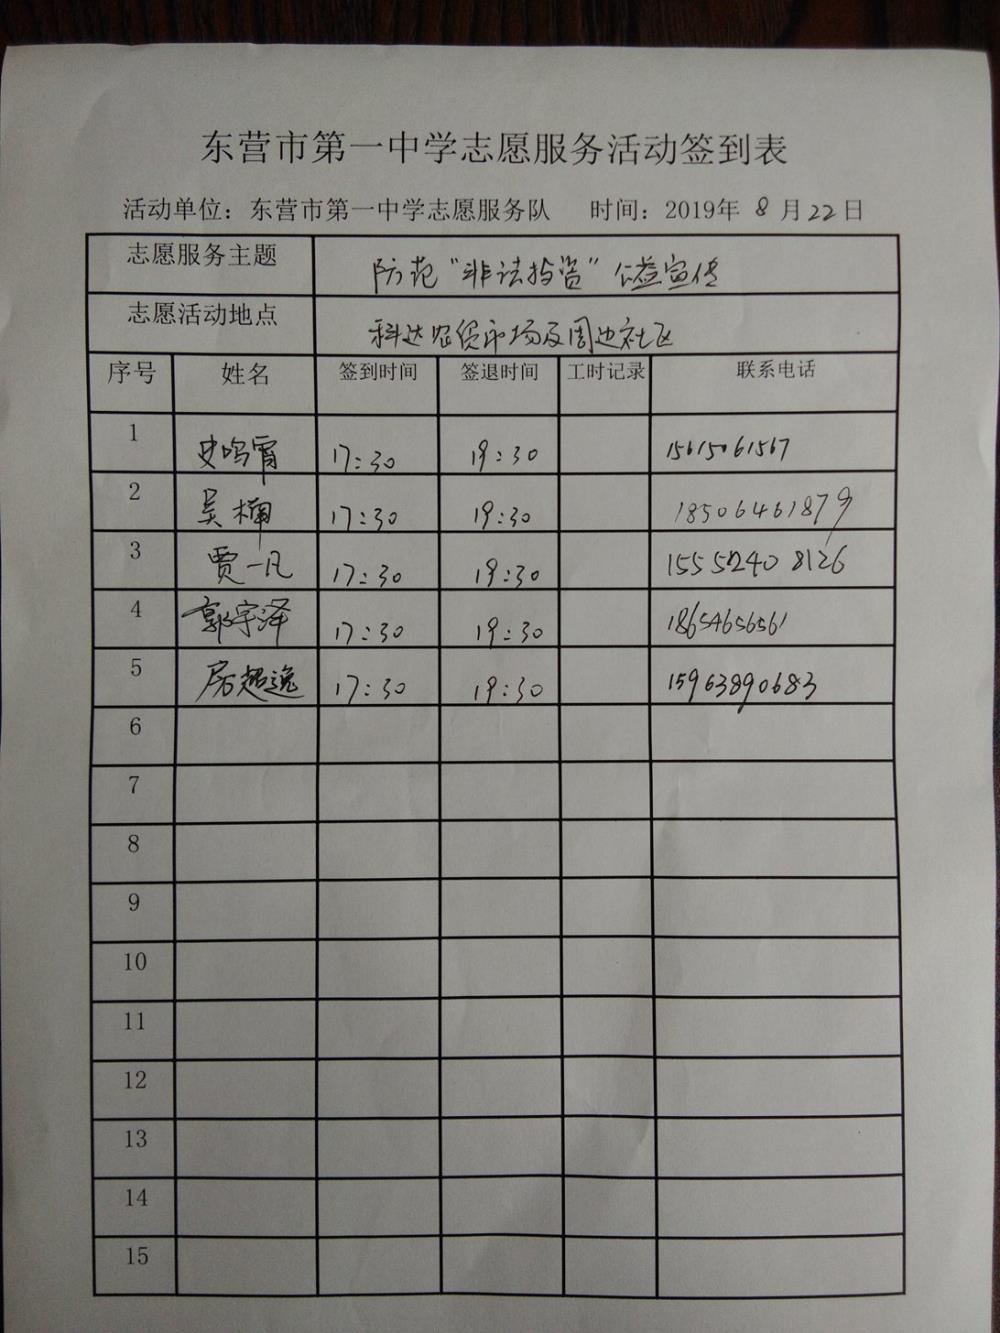 东营市第一中学志愿服务活动签到表
活动单位：东营市第一中学志愿服务队 时间：2019年 8 月 22 日
志愿服务主题 防范“非法投资”公益宣传
志愿活动地点 科达农贸市场及周边社区
序号 姓名 签到时间 签退时间 工时记录 联系电话
1 史鸣霄 17:30 19:30 15615061567
2 吴楠 17:30 19:30 18506461879
3 贾一凡 17:30 19:30 15552408126
4 郭宇泽 17:30 19:30 18654656561
5 房超逸 17:30 19:30 15963890683
6
7
8
9
10
11
12
13
14
15